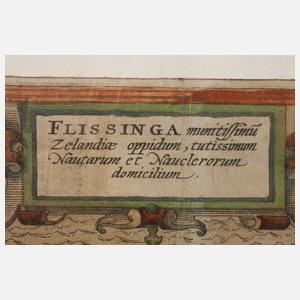 FLISSINGA munitiſſimũ
Zelandiæ oppidum, tutissimum
Nautarum et Nauclerorum
domicilium.